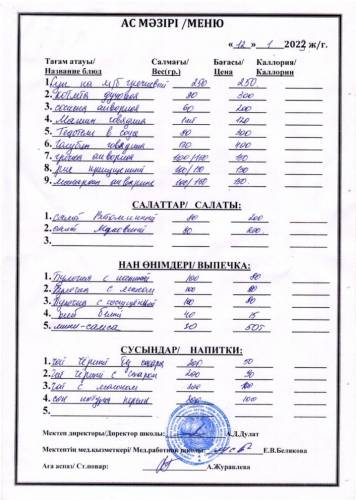 АС МӘЗІРІ /МЕНЮ
« 12 » 1 2022 ж/г.
Тағам атауы/ Салмағы/ Бағасы/ Каллория/
Название блюд Вес(гр.) Цена Каллории
1. Суп на м/б гречневой 250 250
2. Котлета духовая 80 300
3. сосиска отварная 60 200
4. 1шт 120
5. Тефтели в соусе 80 300
6. Голубцы говядина 120 400
7. гречка отварная 100/150 150
8. рис припущенный 100/150 150
9. макароны отварные 100/150 150
САЛАТТАР/ САЛАТЫ:
1. салат Витаминный 80 200
2. салат 80 200
3.
НАН ӨНІМДЕРІ/ ВЫПЕЧКА:
1. Булочка с 100 80
2. Булочка с маком 100 80
3. Булочка с сгущенкой 100 80
4. хлеб белый 40 15
5. мини-самса 50т
СУСЫНДАР/ НАПИТКИ:
1. чай черный без сахара 200 50
2. чай черный с сахаром 200
3. чай с молоком 200 100
4. сок 200 100
5.
Мектеп директоры/Директор школы: А.Д.Дулат
Мектептің мед.қызметкері/ Мед.работник школы: Е.В.Белякова
Аға аспаз/ Ст.повар: А.Журавлева